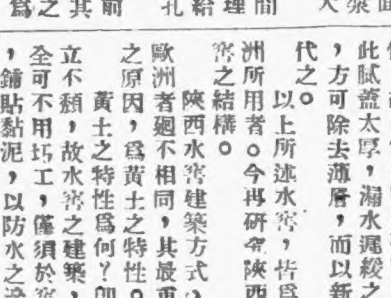 間
理
給
孔
前
其
之
爲
此膩蓋太厚,漏水遲緩之
,方可除去薄層,而以新
代之。
以上所述水窖,皆爲
洲所用者。今再研究陝西
窖之結構。
陝西水窖建築方式,
歐洲者廻不相同,其最重
之原因,爲黃土之特性。
黃土之特性爲何?即
立不頹,故水窖之建築,
全可不用圬工,僅須於窖
,鋪貼黏泥,以防水之滲